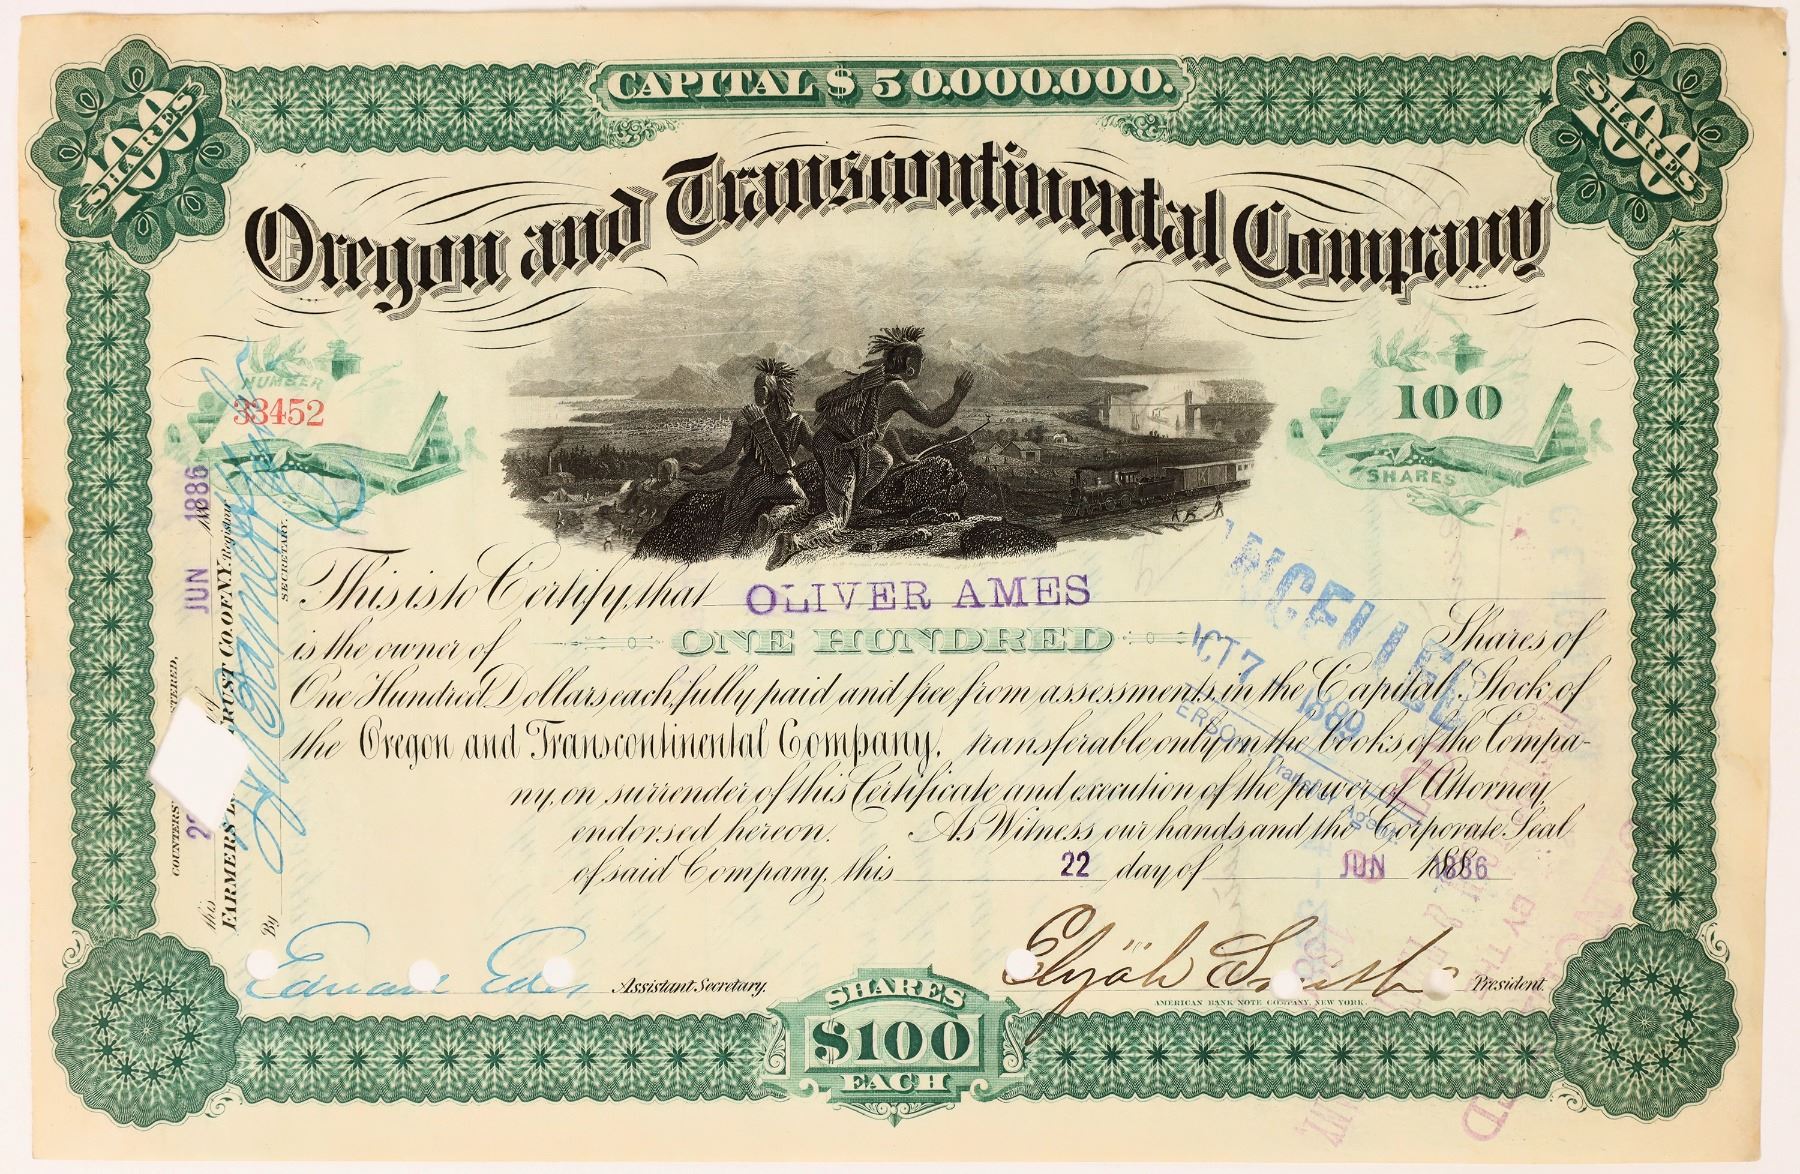 CAPITAL $50.000.000.
100 SHARES
100 SHARES
Oregon and Transcontinental Company
NUMBER
33452
100
SHARES
This is to Certify, that OLIVER AMES
is the owner of ONE HUNDRED Shares of
One Hundred Dollars each, fully paid and free from assessments in the Capital Stock of
the Oregon and Transcontinental Company, transferable only on the books of the Compa-
ny, on surrender of this Certificate and execution of the power of Attorney
endorsed hereon. As Witness our hands and the Corporate Seal
of said Company, this 22 day of JUN 1886
Edward Assistant Secretary.
Elijah Smith President.
AMERICAN BANK NOTE COMPANY, NEW YORK.
SHARES
$100
EACH
this JUN 1886
TRUST CO. OF N.Y. Registrar
By
SECRETARY.
7 1889
Transfer Agent